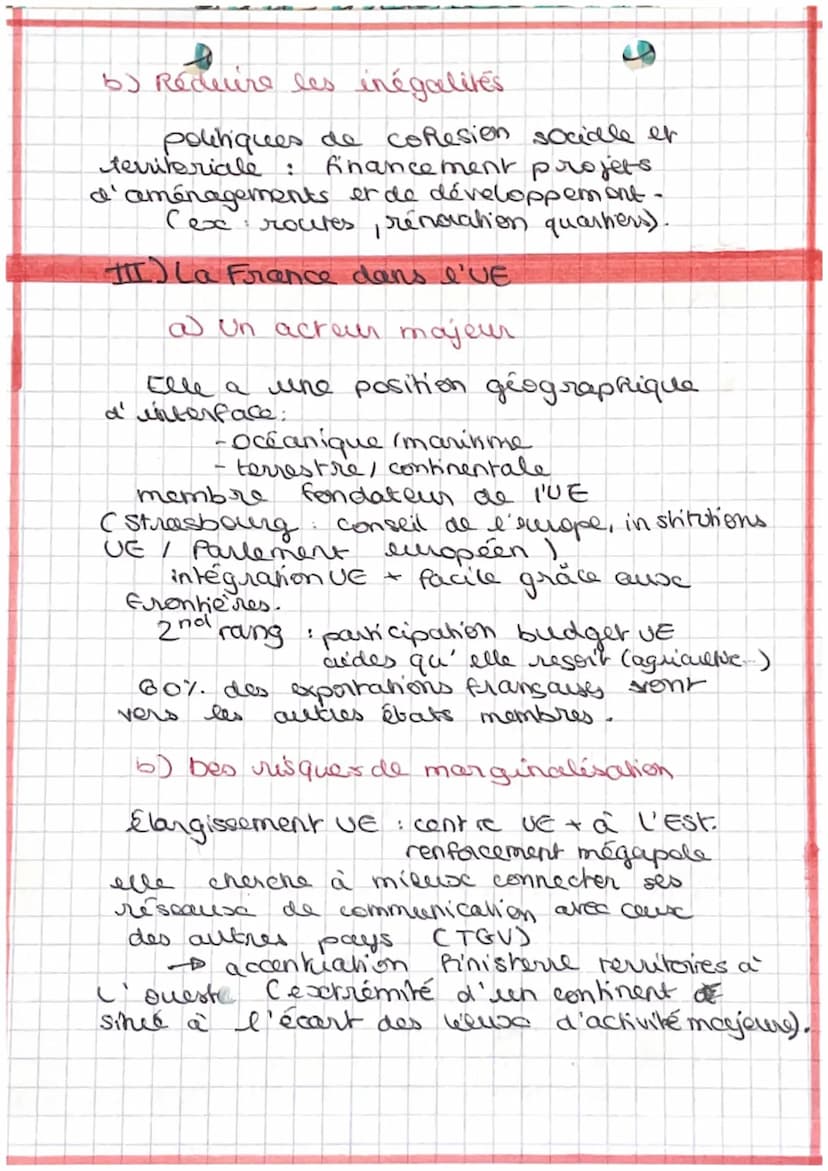 b) Réduire les inégalités
politiques de cohésion sociale et
territoriale : financement projets
d'aménagements et de développement.
(ex : routes, rénovation quartiers).
III) La France dans l'UE
a) Un acteur majeur
Elle a une position géographique
d'interface:
- océanique / maritime
- terrestre / continentale
membre fondateur de l'UE
(Strasbourg : conseil de l'europe, institutions
UE / Parlement européen)
intégration UE + facile grâce aux
frontières.
2nd rang : participation budget UE
aides qu'elle reçoit (agriculture...)
60% des exportations françaises sont
vers les autres États membres.
b) Des risques de marginalisation
Élargissement UE : centre UE + à l'Est.
renforcement mégapole
elle cherche à mieux connecter ses
réseaux de communication avec ceux
des autres pays (TGV)
→ accentuation finisterre territoires à
l'ouest (extrémité d'un continent
situé à l'écart des lieux d'activité majeure).